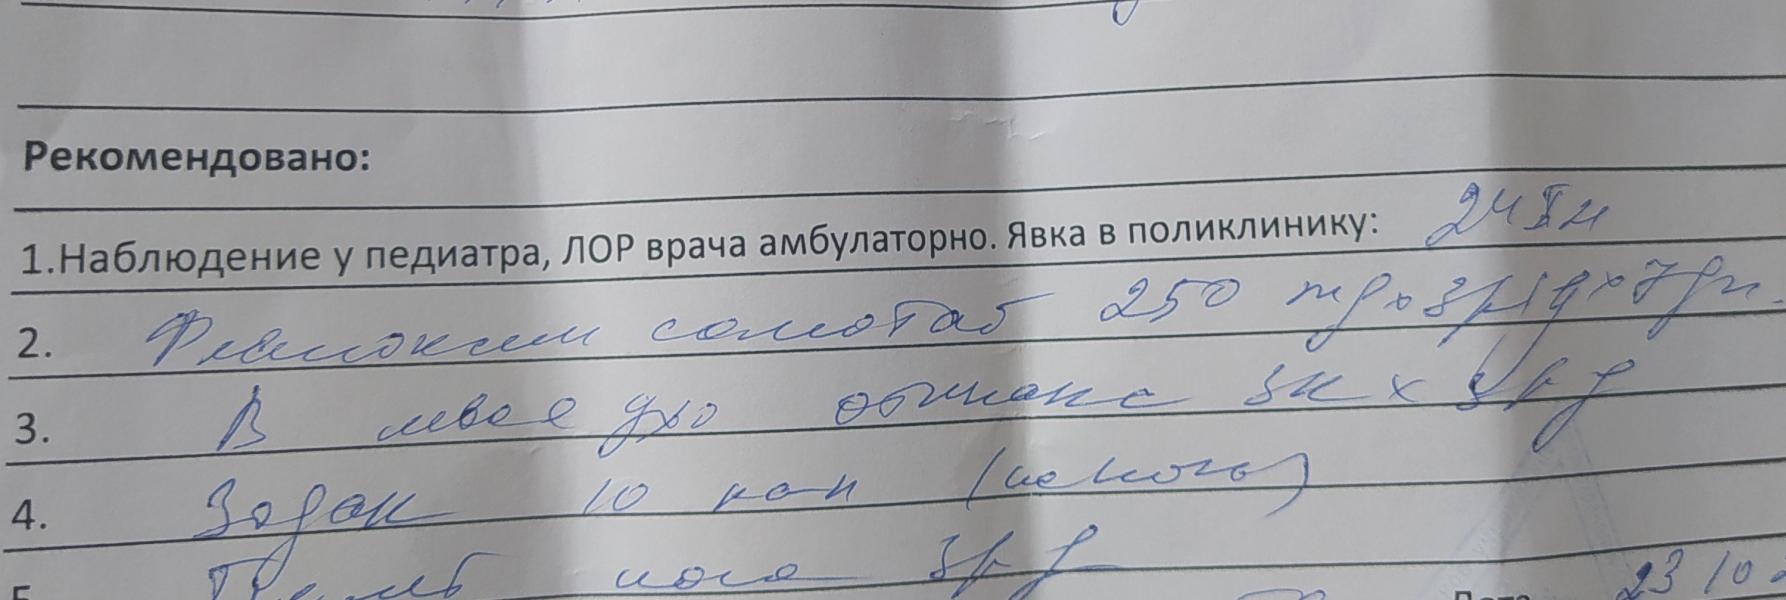 Рекомендовано:
1.Наблюдение у педиатра, ЛОР врача амбулаторно. Явка в поликлинику: 24
2. Флемоксин солютаб 250 mg x 3р/д x 7дн.
3. В левое ухо отипакс 3к x 3р д
4. Зодак 10 кап (на ночь)
5. носа 3р д
23 10